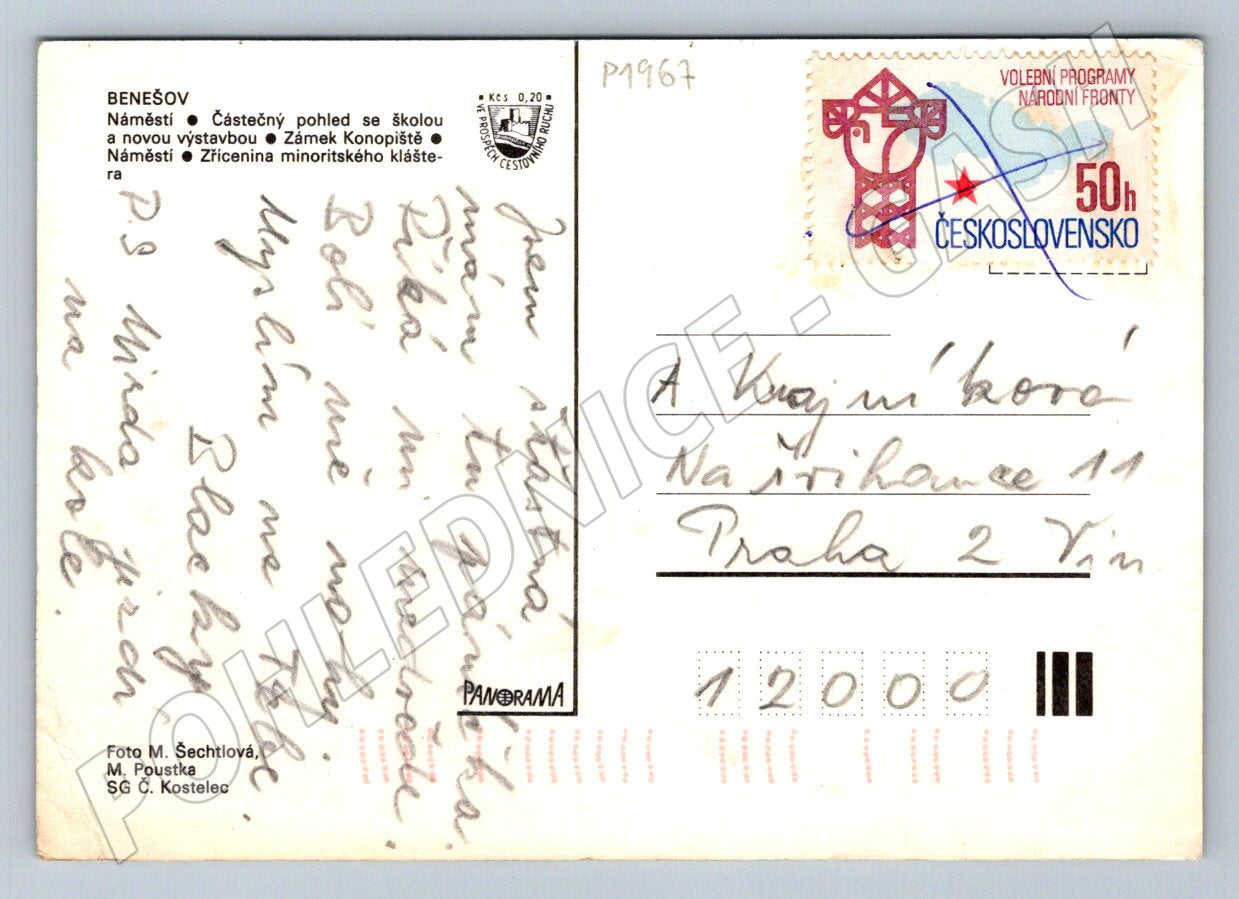 BENEŠOV
Náměstí ● Částečný pohled se školou
a novou výstavbou ● Zámek Konopiště ●
Náměstí ● Zřícenina minoritského klášte-
ra
Kčs 0,20
VE PROSPĚCH CESTOVNÍHO RUCHU
P1967
VOLEBNÍ PROGRAMY
NÁRODNÍ FRONTY
50h
ČESKOSLOVENSKO
Jsem šťastná
mám tu páníčka
Říká mi
Bolí mě nohy.
Myslím na Tebe.
Blacky
P.S Mirda jezdí
na kole.
A Krajníková
Na Švihance 11
Praha 2 Vin
12000
PANORAMA
Foto M. Šechtlová,
M. Poustka
SG Č. Kostelec
POHLEDNICE - GASH